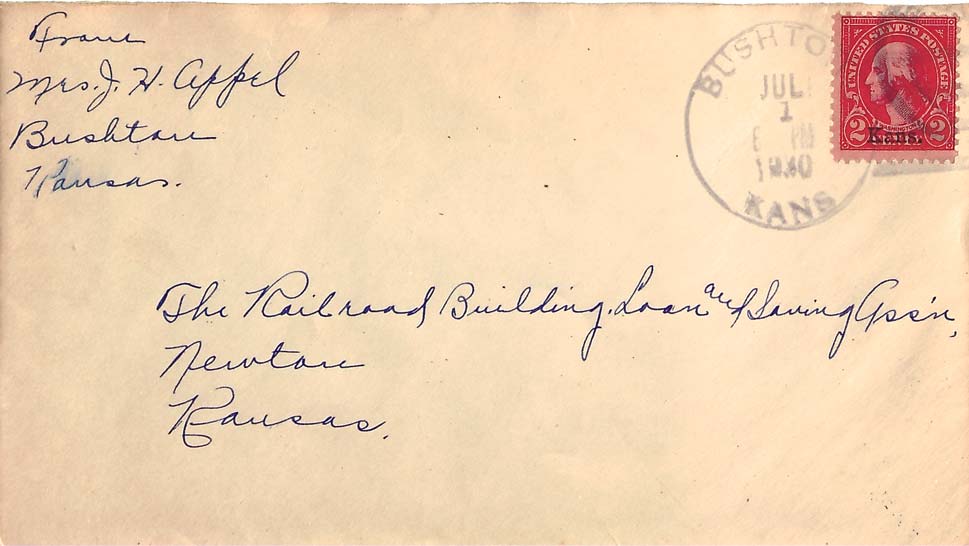 From
Mrs. J. H. Appel
Bushton
Kansas.
BUSHTO
JUL
1
PM
1930
KANS
UNITED STATES POSTAGE
WASHINGTON
2 Kans. 2
The Railroad Building, Loan and Saving Ass'n,
Newton
Kansas.